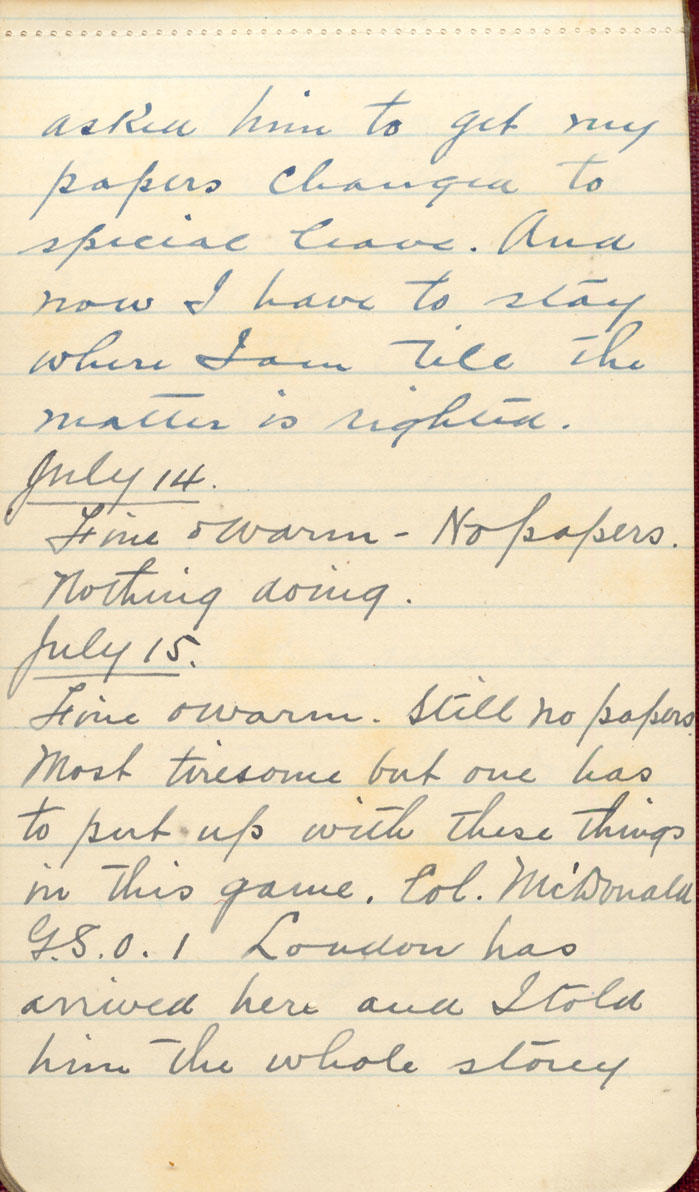 asked him to get my
papers changed to
special leave. And
now I have to stay
where I am till the
matter is righted.
July 14.
Fine & warm - No papers.
Nothing doing.
July 15.
Fine & warm. Still no papers.
Most tiresome but one has
to put up with these things
in this game. Col. McDonald
G.S.O. 1 London has
arrived here and I told
him the whole storey